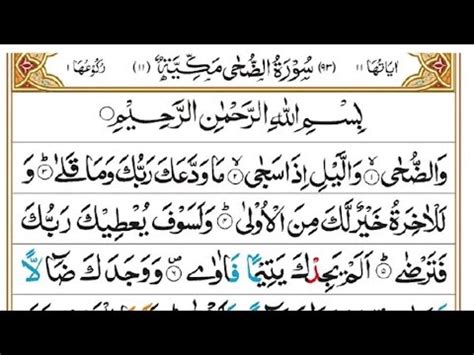 اٰیاتها ۱۱ (۹۳) سُوْرَةُ الضُّحٰى مَكِّيَّةٌ (۱۱) رکوعها ۱
بِسْمِ اللهِ الرَّحْمٰنِ الرَّحِيْمِ
وَالضُّحٰى ۱ وَالَّيْلِ اِذَا سَجٰى ۲ مَا وَدَّعَكَ رَبُّكَ وَمَا قَلٰى ۳ وَ
لَلْاٰخِرَةُ خَيْرٌ لَّكَ مِنَ الْاُوْلٰى ۴ وَلَسَوْفَ يُعْطِيْكَ رَبُّكَ
فَتَرْضٰى ۵ اَلَمْ يَجِدْكَ يَتِيْمًا فَاٰوٰى ۶ وَوَجَدَكَ ضَآلًّا